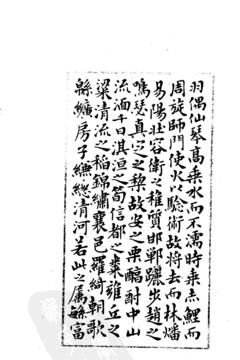 羽偶仙琴高乘水而不濡時乘赤鯉而
周旋師門使火以驗術故將去而林燔
易陽壯容衛之稚質邯鄲躧步趙之
鳴瑟真定之梨故安之栗醇酎中山
流湎千日淇洹之筍信都之棗雍丘之
粱清流之稻錦繡襄邑羅綺朝歌
緜纊房子縑緫清河若此之屬繁富